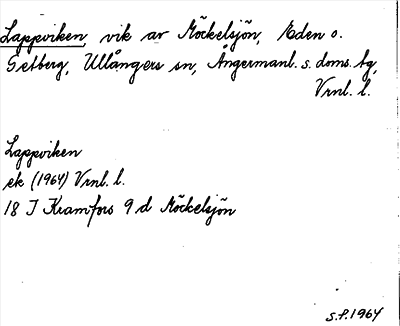 Lappviken, vik av Möckelsjön, Eden o.
Getberg, Ullångers sn, Ångermanl. s. doms. tg,
Vrnl. l.
Lappviken
ek (1964) Vrnl. l.
18 I Kramfors 9 d Möckelsjön
S.P. 1964